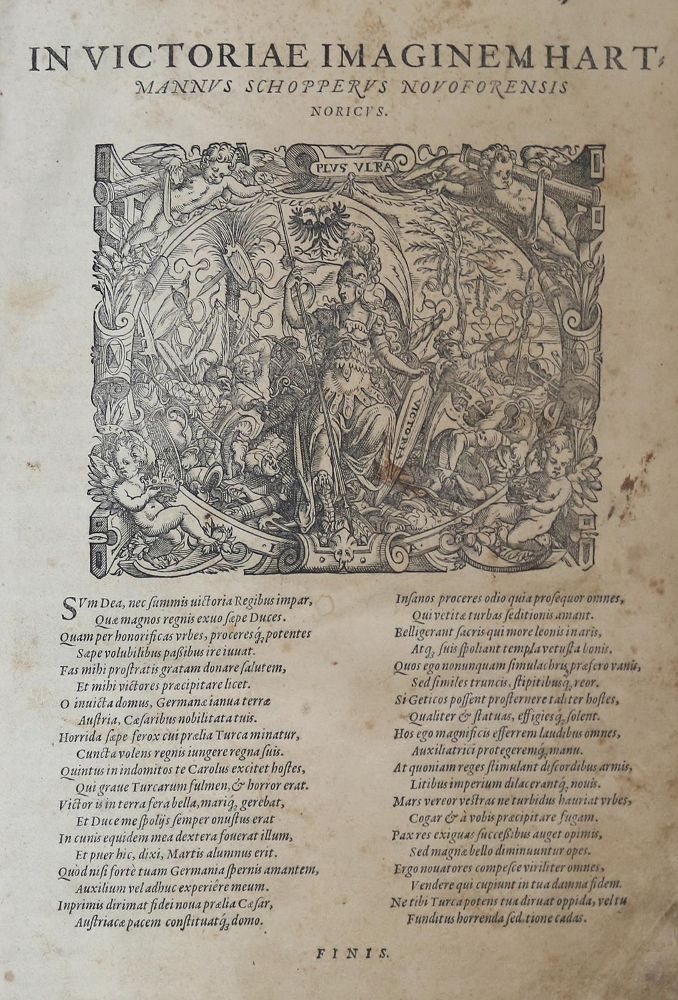 IN VICTORIAE IMAGINEM HART-
MANNVS SCHOPPERVS NOVOFORENSIS
NORICVS.
PLVS VLTRA
VICTORIA
I A
SVm Dea, nec summis uictoria Regibus impar,
Quæ magnos regnis exuo sæpe Duces.
Quam per honorificas vrbes, proceresq́; potentes
Sæpe volubilibus passibus ire iuuat.
Fas mihi prostratis gratam donare salutem,
Et mihi victores præcipitare licet.
O inuicta domus, Germanæ ianua terræ
Austria, Cæsaribus nobilitata tuis.
Horrida sæpe ferox cui prælia Turca minatur,
Cuncta volens regnis iungere regna suis.
Quintus in indomitos te Carolus excitet hostes,
Qui graue Turcarum fulmen, & horror erat.
Victor is in terra fera bella, mariq́; gerebat,
Et Duce me spolijs semper onustus erat
In cunis equidem mea dextera fouerat illum,
Et puer hic, dixi, Martis alumnus erit.
Quòd nisi fortè tuam Germania spernis amantem,
Auxilium vel adhuc experiêre meum.
Inprimis dirimat fidei noua prælia Cæsar,
Austriacæ pacem constituatq́; domo.
Insanos proceres odio quia prosequor omnes,
Qui vetitæ turbas seditionis amant.
Belligerant sacris qui more leonis in aris,
Atq́; suis spoliant templa vetusta bonis.
Quos ego nonunquam simulachris præfero vanis,
Sed similes truncis, stipitibusq́; reor.
Si Geticos possent prosternere taliter hostes,
Qualiter & statuas, effigiesq́; solent.
Hos ego magnificis efferrem laudibus omnes,
Auxiliatrici protegeremq́; manu.
At quoniam reges stimulant discordibus armis,
Litibus imperium dilacerantq́; nouis.
Mars vereor vestras ne turbidus hauriat vrbes,
Cogar & à vobis præcipitare fugam.
Pax res exiguas successibus auget opimis,
Sed magnæ bello diminuuntur opes.
Ergo nouatores compesce viriliter omnes,
Vendere qui cupiunt in tua damna fidem.
Ne tibi Turca potens tua diruat oppida, vel tu
Funditus horrenda seditione cadas.
FINIS.